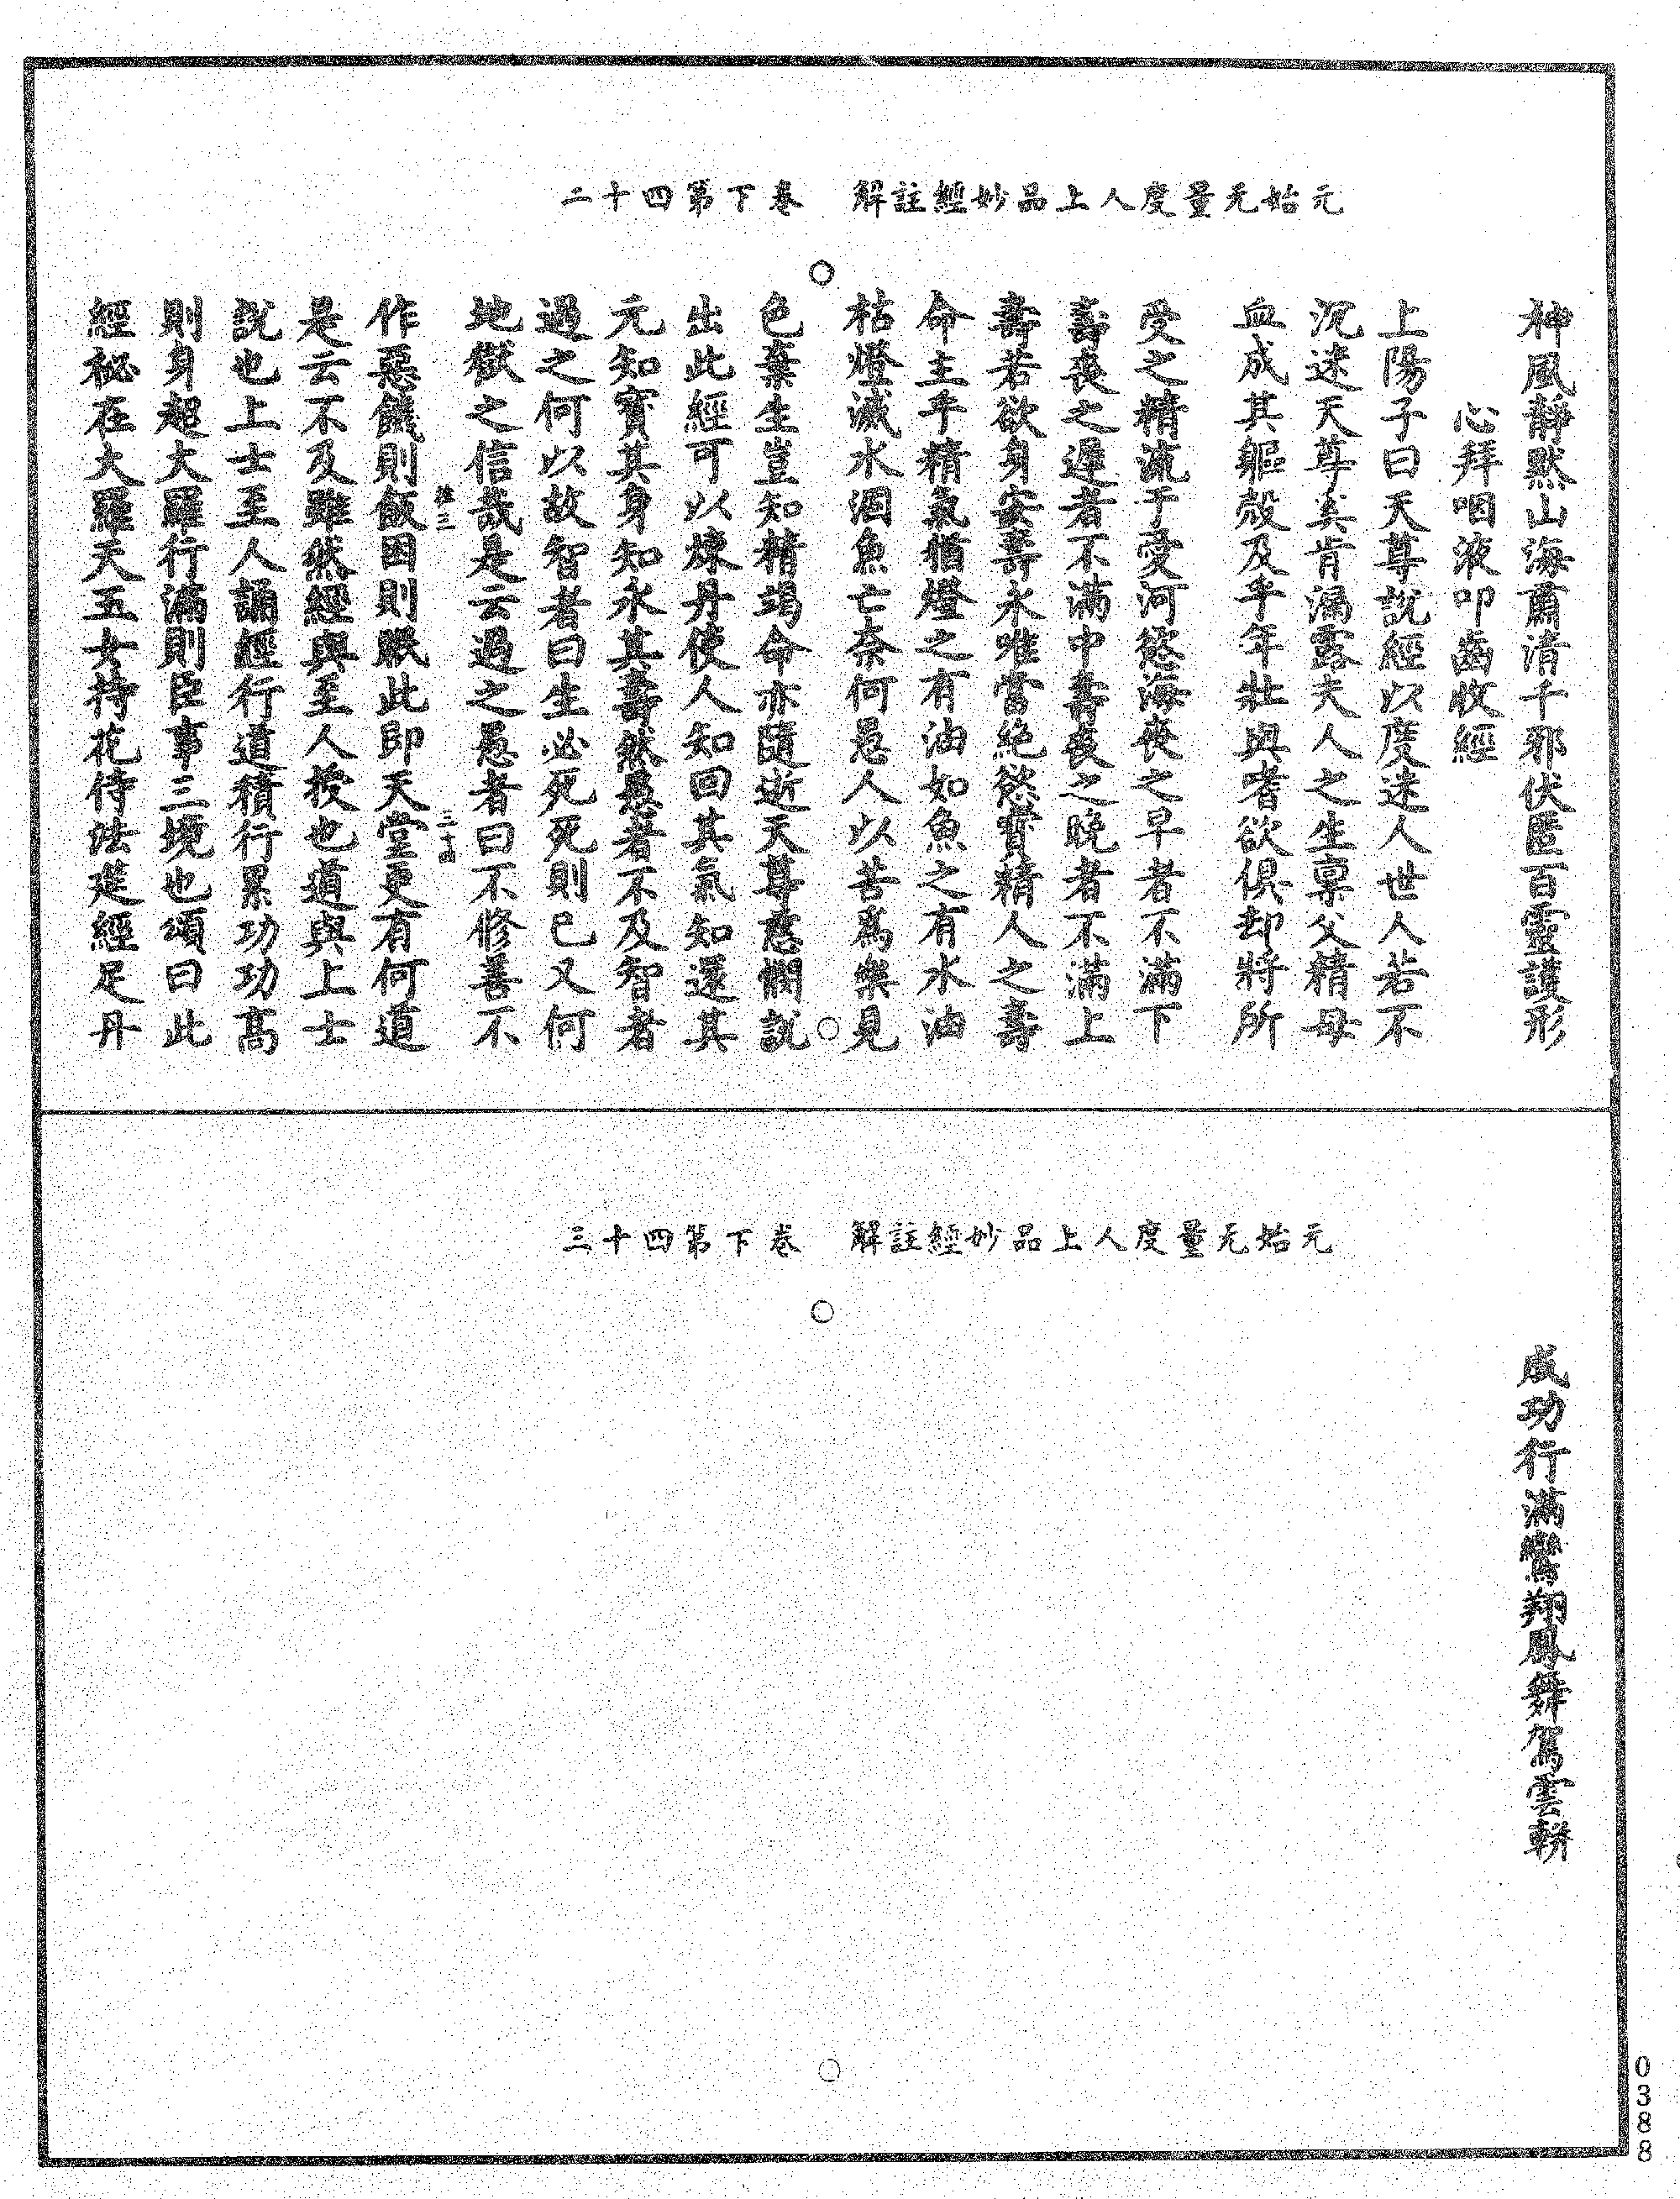 元始无量度人上品妙經註解　卷下第四十二
神風靜默山海肅清千邪伏匿百靈護形
心拜咽液叩齒收經
上陽子曰天尊說經以度迷人世人若不
沉迷天尊奚肯漏露夫人之生稟父精母
血成其軀殼及乎年壯與嗜欲俱却將所
受之精流于愛河慾海喪之早者不滿下
壽喪之遲者不滿中壽喪之晚者不滿上
壽若欲身安壽永唯當絶慾寶精人之壽
命主乎精氣猶燈之有油如魚之有水油
枯燈滅水涸魚亡奈何愚人以苦爲樂見
色棄生豈知精竭命亦隨逝天尊慈憫說
出此經可以煉丹使人知回其氣知還其
元知寶其身知永其壽然愚者不及智者
過之何以故智者曰生必死死則已又何
地獄之信哉是云過之愚者曰不修善不
作惡饑則飯困則眠此即天堂更有何道
是云不及雖然經與至人授也道與上士
說也上士至人誦經行道積行累功功高
則身超大羅行滿則臣事三境也頌曰此
經祕在大羅天玉女持花侍法筵經足丹
三十四
元始无量度人上品妙經註解　卷下第四十三
成功行滿鸞翔鳳舞駕雲軿
0388